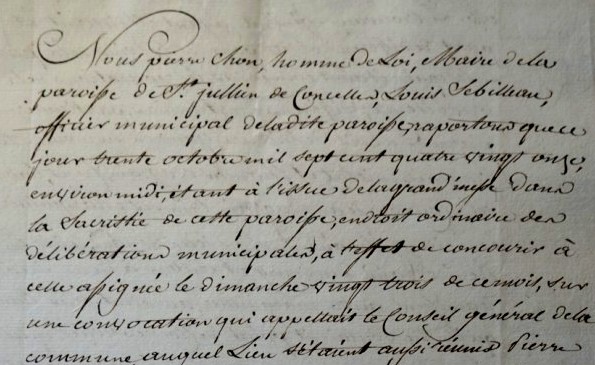 Nous pierre chon, homme de Loi, Maire de la
paroisse de St. jullien de Concelles, Louis Sebilleau,
officier municipal deladite paroisse, raportons que ce
jour trente octobre mil sept cent quatre vingt onze,
environ midi, étant à l'issue delagrand'messe dans
la Sacristie de cette paroisse, endroit ordinaire des
délibérations municipales, à l'effet de concourir à
celle assignée le dimanche vingt trois de cemois, sur
une convocation qui appellait le Conseil général dela
commune, auquel Lieu s'étaient aussi réunis Pierre